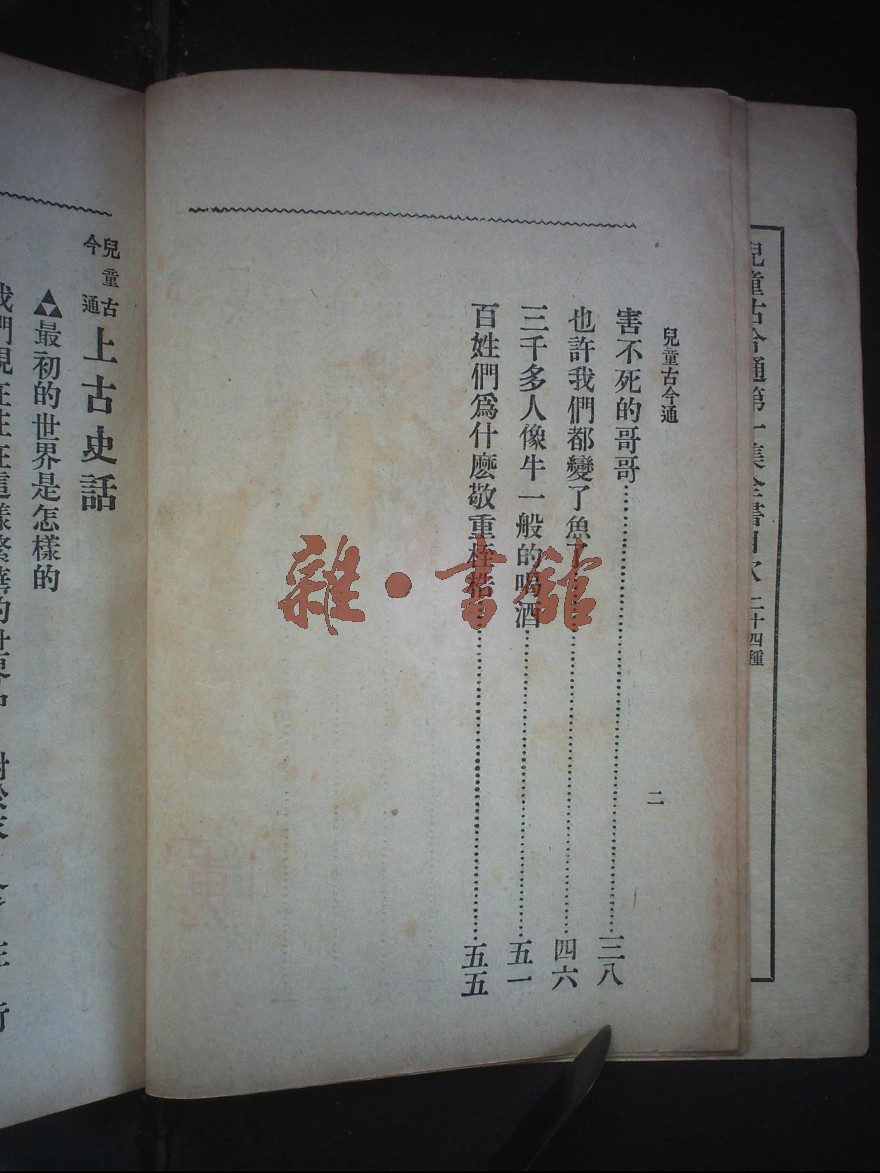 兒童古今通第一集全書目次 二十四種
兒童古今通
害不死的哥哥……三八
也許我們都變了魚了……四六
三千多人像牛一般的喝酒……五一
百姓們爲什麽敬重桎梏……五五
二
兒童古今通 上古史話
▲最初的世界是怎樣的
我們現在住在這樣繁華的世界
雜·書館